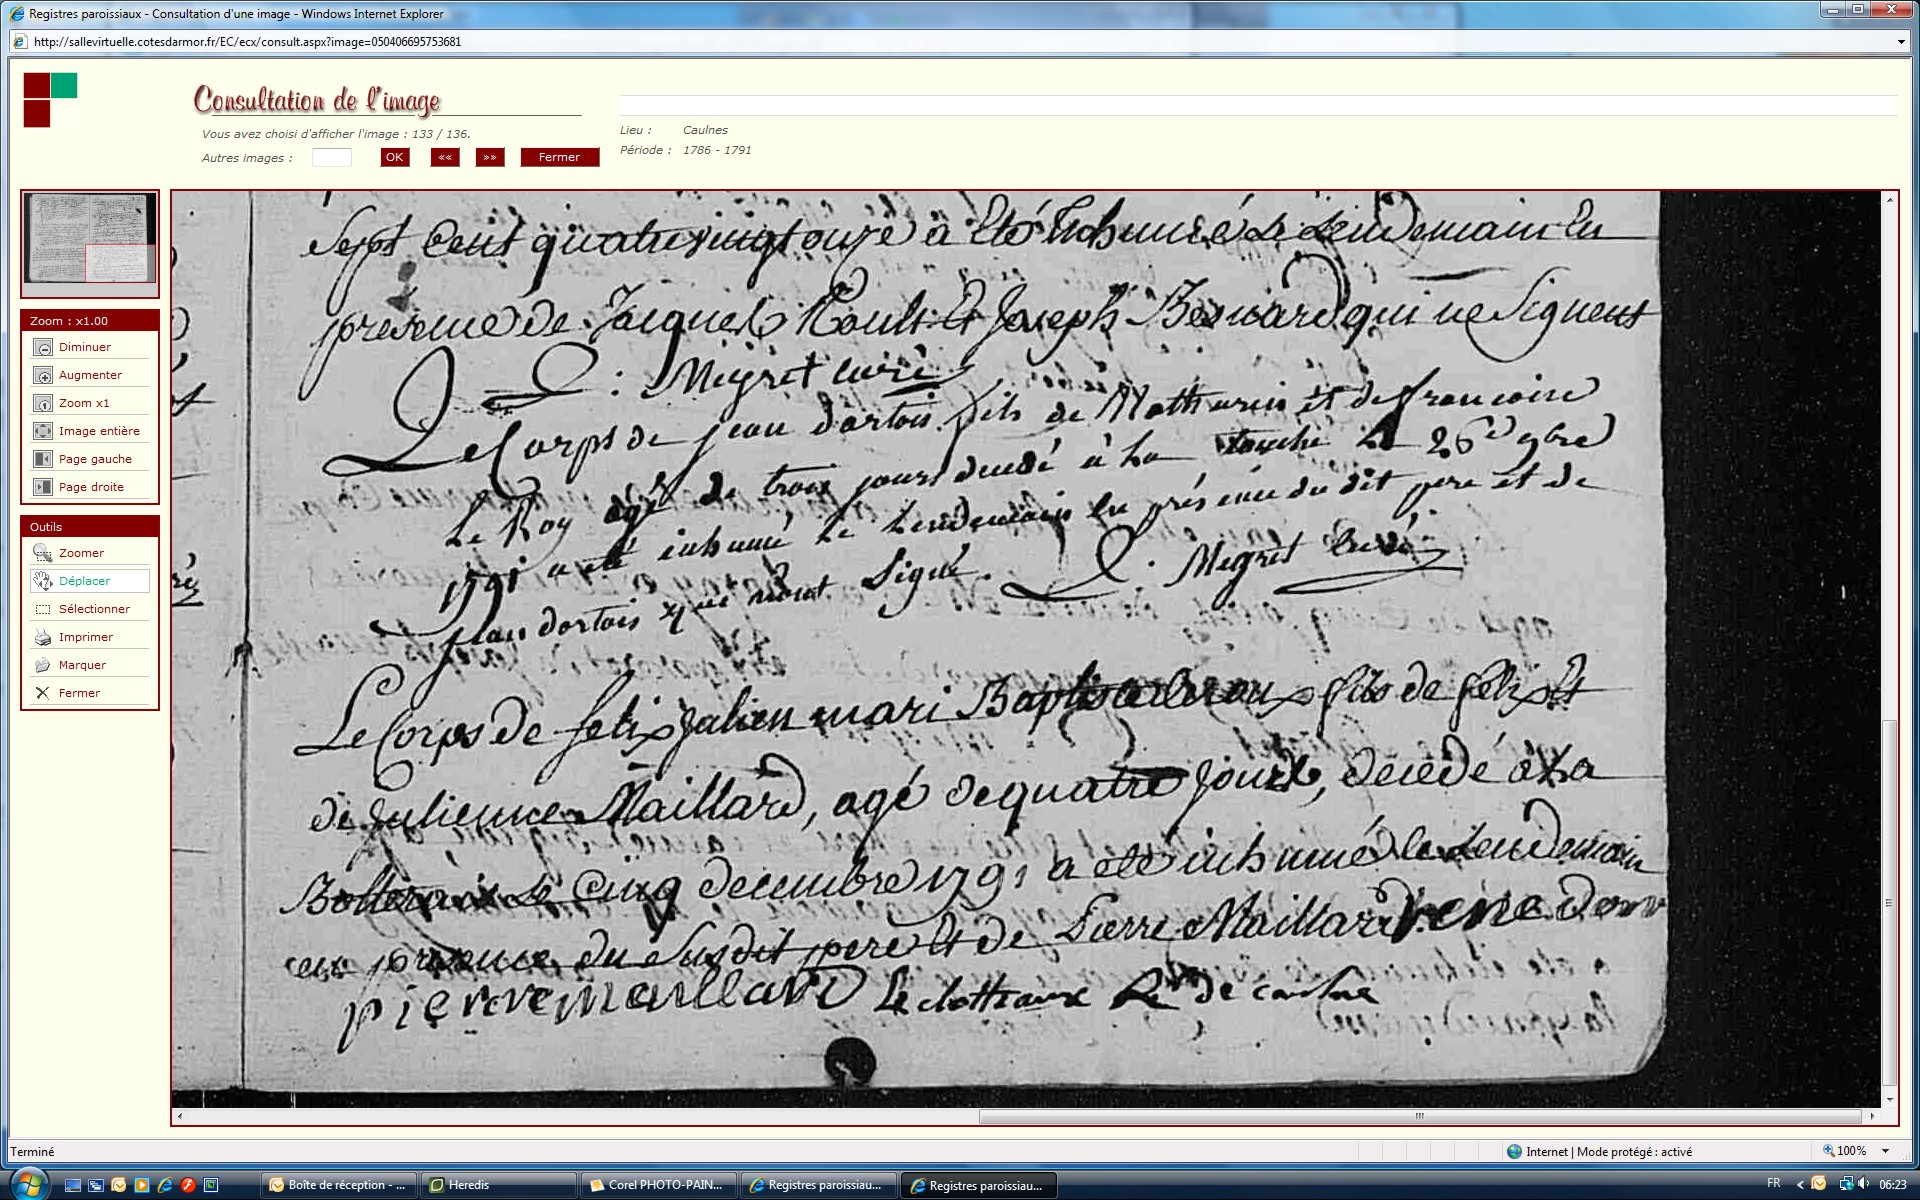 Registres paroissiaux - Consultation d'une image - Windows Internet Explorer
http://sallevirtuelle.cotesdarmor.fr/EC/ecx/consult.aspx?image=050406695753681
Consultation de l'image
Vous avez choisi d'afficher l'image : 133 / 136.
Autres images :
OK
««
»»
Fermer
Lieu : Caulnes
Période : 1786 - 1791
Zoom : x1.00
Diminuer
Augmenter
Zoom x1
Image entière
Page gauche
Page droite
Outils
Zoomer
Déplacer
Sélectionner
Imprimer
Marquer
Fermer
Sept Cent quatrevingt onze à Eté Inhumé Le Lendemain En
presence de Jacques Et Joseph Besnard qui ne Signent
: Megret curé
Le Corps de jean dartois fils de Mathurin et de francoise
Le Roy agé de trois jours decedé à la touche Le 26 9bre
1791 a eté inhumé le Lendemain En présence du dit pere et de
jean dartois qui n'ont Signé. Megret curé
Le Corps de felix Julien mari Baptiste fils de felix Et
de Julienne Maillard, agé de quatre Jours, decedé à La
Le Cinq decembre 1791 a eté inhumé le Lendemain
en presence du Susdit pere Et de Pierre Maillard rene
pierre maillard Le de caulne
Terminé
Internet | Mode protégé : activé
100%
Boîte de réception - ...
Heredis
Corel PHOTO-PAIN...
Registres paroissiau...
Registres paroissiau...
FR
06:23